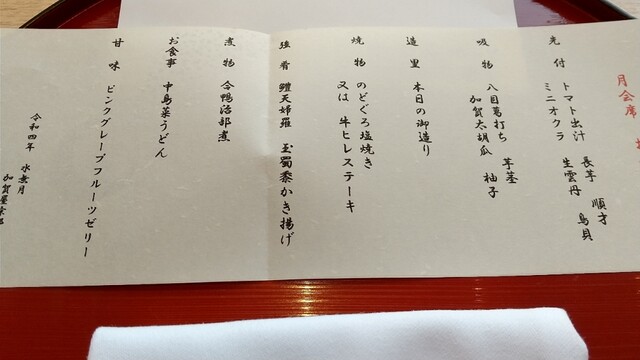 月会席
先付 トマト出汁 長芋 順才
ミニオクラ 生雲丹 鳥貝
吸物 八目葛打ち 芋茎
加賀太胡瓜 柚子
造里 本日の御造り
焼物 のどぐろ塩焼き
又は 牛ヒレステーキ
強肴 鱧天婦羅 玉蜀黍かき揚げ
煮物 合鴨治部煮
お食事 中島菜うどん
甘味 ピンクグレープフルーツゼリー
令和四年 水無月
加賀屋